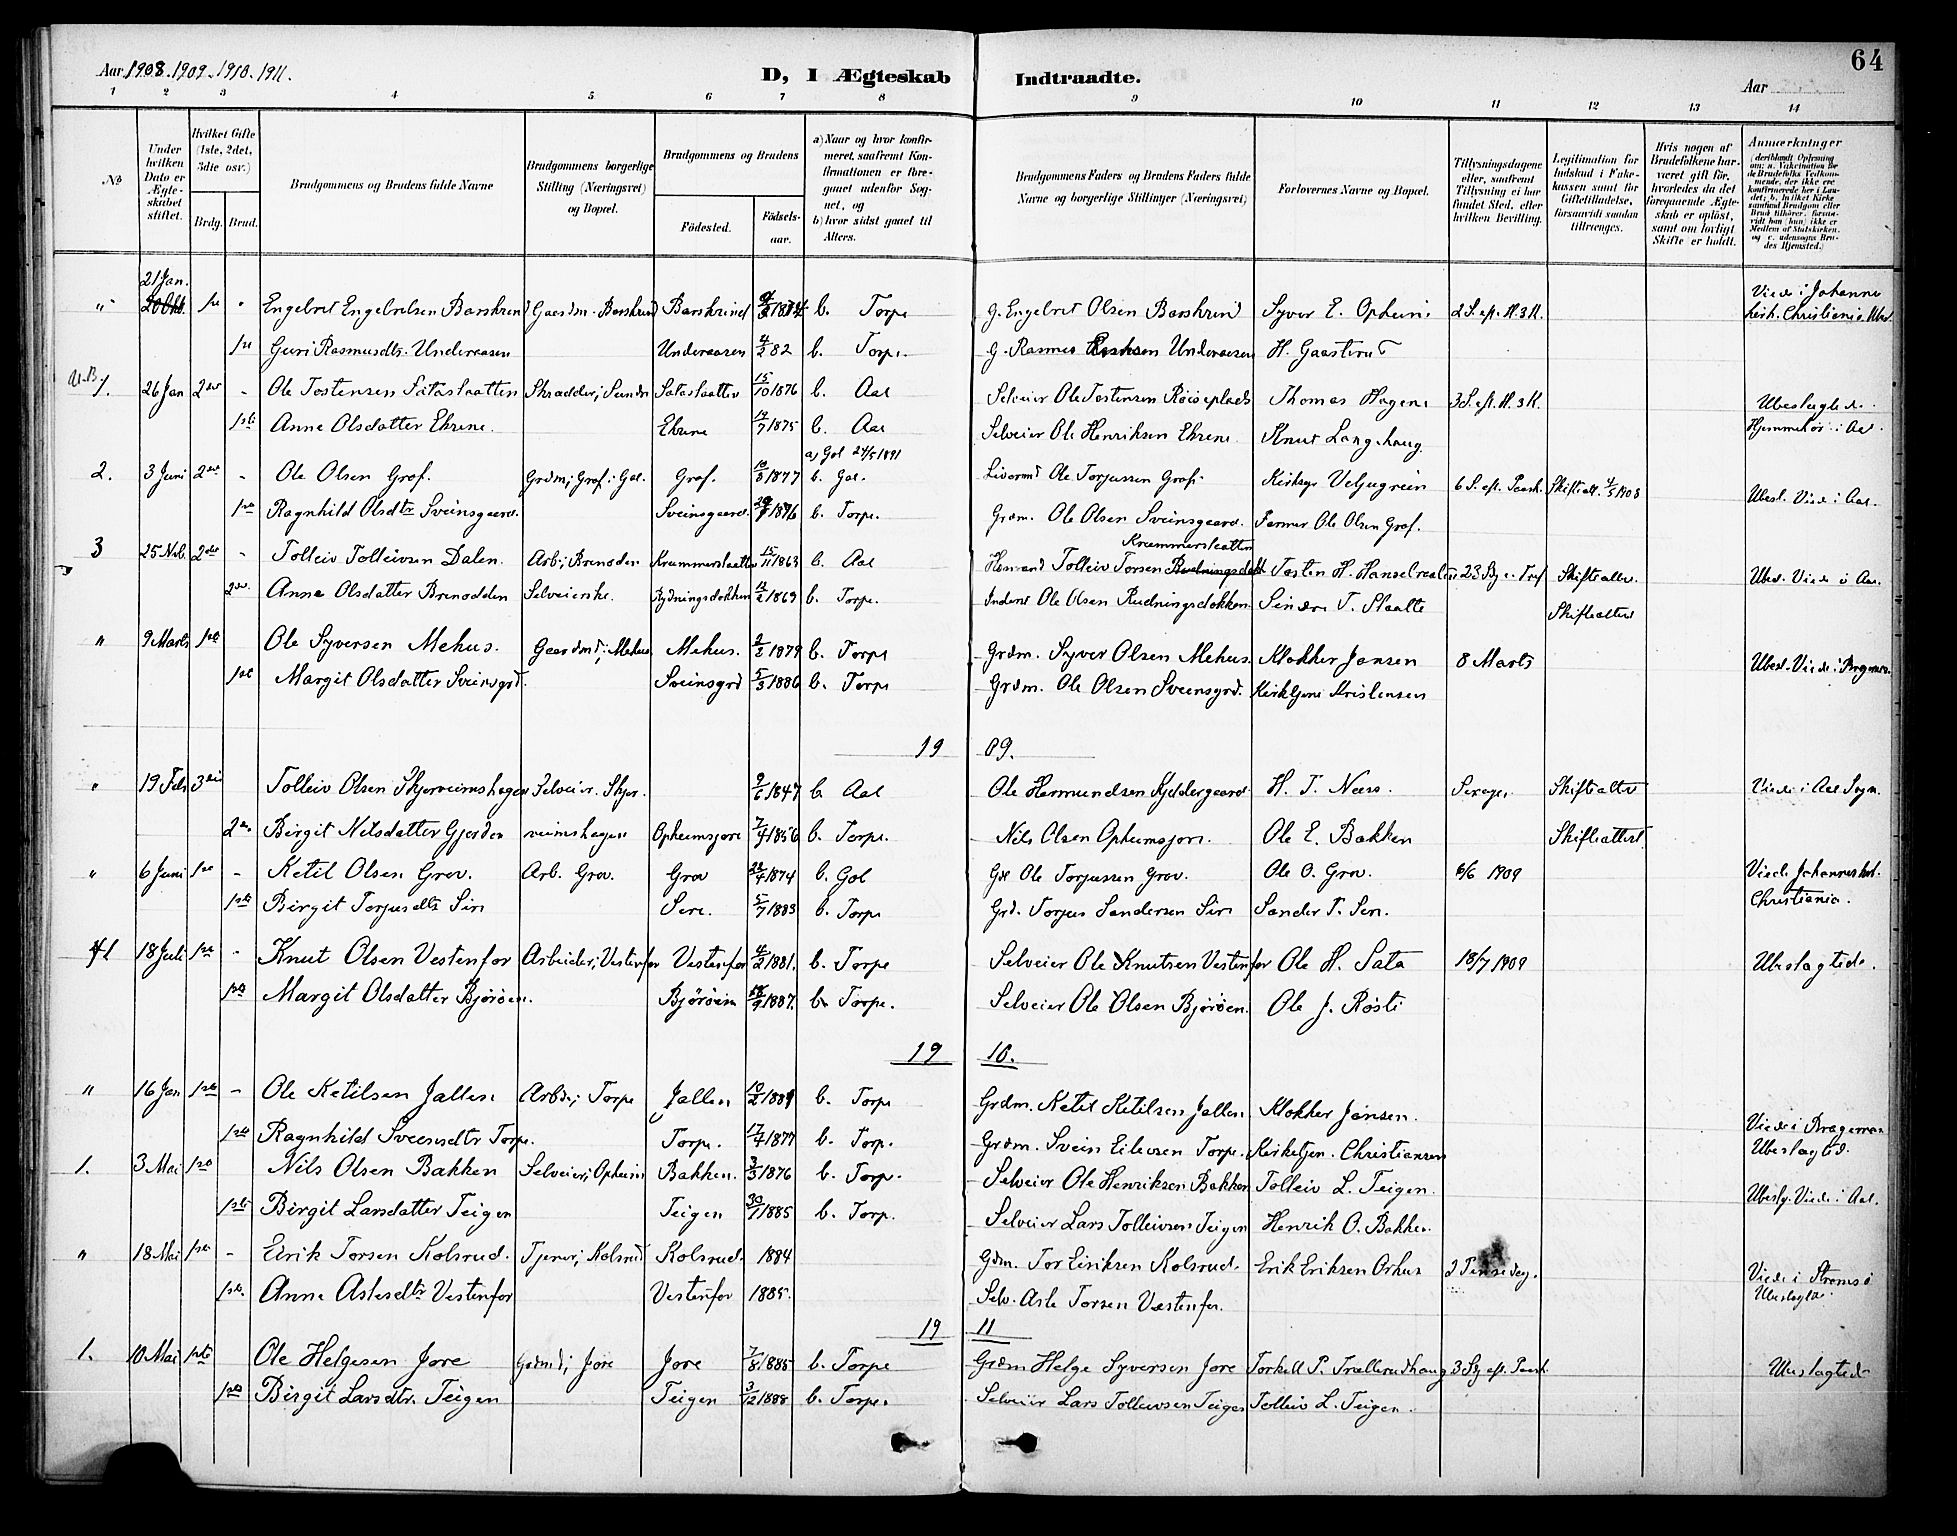 64
Aar 1908. 1909. 1910. 1911.
D, I Ægteskab Indtraadte.
Aar
1 2 3 4 5 6 7 8 9 10 11 12 13 14
No
Under hvilken Dato er Ægteskabet stiftet.
Hvilket Gifte (1ste, 2det, 3die osv.)
Brdg. Brud.
Brudgommens og Brudens fulde Navne
Brudgommens borgerlige Stilling (Næringsvei) og Bopæl.
Brudgommens og Brudens
Fødested. Fødselsaar.
a) Naar og hvor konfirmeret, saafremt Konfirmationen er foregaaet udenfor Sognet, og
b) hvor sidst gaaet til Alters.
Brudgommens Faders og Brudens Faders fulde Navne og borgerlige Stillinger (Næringsvei)
Forlovernes Navne og Bopæl.
Tillysningsdagene eller, saafremt Tillysning ei har fundet Sted, efter hvilken Bevilling.
Legitimation for Indskud i Enkekassen samt for Giftetilladelse, forsaavidt saadan tiltrænges.
Hvis nogen af Brudefolkene har været gift før, hvorledes da det foregaaende Ægteskab er opløst, samt om lovligt Skifte er holdt.
Anmærkninger
21 Jan.
" Engebret Engebretsen Barskrind Gaardm. Barskrind Barskrind b. Torpe g. Engebret Olsen Barskrind Syver E. Opheim 2 S. ef. H. 3 K. Viede i Johannes kirk. Christiania Ubesl.
1ste Guri Rasmusdtr. Underaasen Underaasen 4/2 82 b. Torpe. G. Rasmus Underaasen H. Gaasterud
1. 26 Jan 2det - Ole Tostensen Sataslaatten Skrædder, Sundre Sataslaatten 15/10 1876 b. Aal Selveier Ole Tostensen Roiseplads Thomas Hagene 3 S. ef. H. 3 K. Ubeslægtede.
1ste Anne Olsdatter Ehrene. Ehrene 17/7 1875 b. Aal Selveier Ole Henriksen Ehrene. Knut Langehaug. Hjemmehør. i Aal.
a) Gol 24/5 1891
2. 3 Juni 2det - Ole Olsen Grof. Grdm, Grof i Gol. Grof. 10/3 1877 b. Gol. Livørmd Ole Torjussen Grof. Kirkesgr Velgugrein 6 S. eft. Paask. Skifteatt. 4/5 1908 Ubesl. Viede i Aal.
1ste Ragnhild Olsdtr Sveinsgaard. Sveinsgaard. 1876 b. Torpe. Grdm. Ole Olsen Sveinsgaard. Farmer Ole Olsen Grof.
3 25 Nob. 2det - Tolleiv Tolleivsen Dalen. Arb; Brenodden Krammerslaatten 15/11 1863 b. Aal Husmand Tolleiv Torsen Krammerslaatten Tosten H. Hanselreaten 23 Sy e. Tref Skifteattr. Ubesl. Viede i Aal.
2den. Anne Olsdatter Brenodden Selveierske. Rydningsdokken 12/2 1869 b. Torpe. Inderst Ole Olsen Rudningsdokken. Sindre T. Slaatte Skifteattest
" 9 Marts 1ste Ole Syversen Mehus. Gaardmd; Mehus Mehus. 2/2 1879 b. Torpe Grdm. Syver Olsen Mehus. Klokker Jansen 8 Marts Ubesl. Viede i Bragernes.
1ste Margit Olsdatter Sveinsgrd. Sveinsgrd 5/3 1886 b. Torpe Grdm. Ole Olsen Sveensgrd. Kirketjene Kristensen
19 09.
" 19 Feb 3die Tolleiv Olsen Skjerveimshagen Selveier. Skjer. 9/6 1847 b. Aal Ole Hermundsen Kjeldergaard. H. T. Næss. Skifteattest Viede i Aal Sogn.
2den Birgit Nilsdatter Gjorden veimshagen Opheimsjore 7/4 1856 b. Torpe. Nils Olsen Opheimsjore. Ole E. Bakken Skifteattest
" 6 Juni 1ste - Ketil Olsen Grov. Arb. Grov. Grov 22/4 1874 b. Gol Gdr Ole Torjussen Grov. Ole O. Grov. 6/6 1909 Viede Johanneskirk.
1ste Birgit Torjusdtr Siri Sere. 5/7 1883 b. Torpe Grd. Torjus Sandersen Siri Sander T. Sen. Christiania.
1 18 Juli 1ste - Knut Olsen Vestenfor Arbeider; Vestenfor Vestenfor 4/2 1881. b. Torpe Selveier Ole Knutsen Vestenfor Ole H. Sata 18/7 1909 Ubeslægtede.
1ste Margit Olsdatter Bjøröen. Bjøröein 1887. b. Torpe. Selveier Ole Olsen Bjøröen. Ole J. Røsti
19 10.
" 16 Jan 1ste - Ole Ketilsen Jallen Arbd; Torpe Jallen 10/2 1889 b. Torpe Grdm. Ketil Ketilsen Jallen Klokker Jansen.
1ste Ragnhild Sveensdtr Torpe. Torpe. 17/4 1877 b. Torp. Grdm. Svein Eilevsen Torpe. Kirketjen. Christiansen Viede i Bragernes Ubeslagted.
1. 3 Mai 1ste Nils Olsen Bakken Selveier; Opheim Bakken. 3/5 1876 b. Torp. Selveier Ole Henriksen Bakken Tolleiv L. Teigen. Ubeslg. Viede i Aal.
1ste Birgit Larsdatter Teigen Teigen 30/1 1885 b. Torp. Selveier Lars Tolleivsen Teigen Henrik O. Bakken.
" 18 Mai 1ste - Eirik Torsen Kolsrud. Tjener; Kolsrud Kolsrud. 1884 Gdm. Tor Eiriksen Kolsrud. Erik Eriksen Orhus 2 Pinsedag. Viede i Strømsø Ubeslægte.
1ste. Anne Aslesdtr Vestenfor Vestenfor 1885. Selv. Asle Torsen Vestenfor.
19 11
1. 10 Mai 1ste Ole Helgesen Jore Grdmd; Jore Jore 7/8 1885 b. Torpe Grdm Helge Syversen Jore Torkell P. Trællerudhaug 3 Sg eft. Paask. Ubeslagted
1ste Birgit Larsdtr. Teigen Teigen 3/12 1888 b. Torpe. Selveier Lars Tolleivsen Teigen Tolleiv L. Teigen.